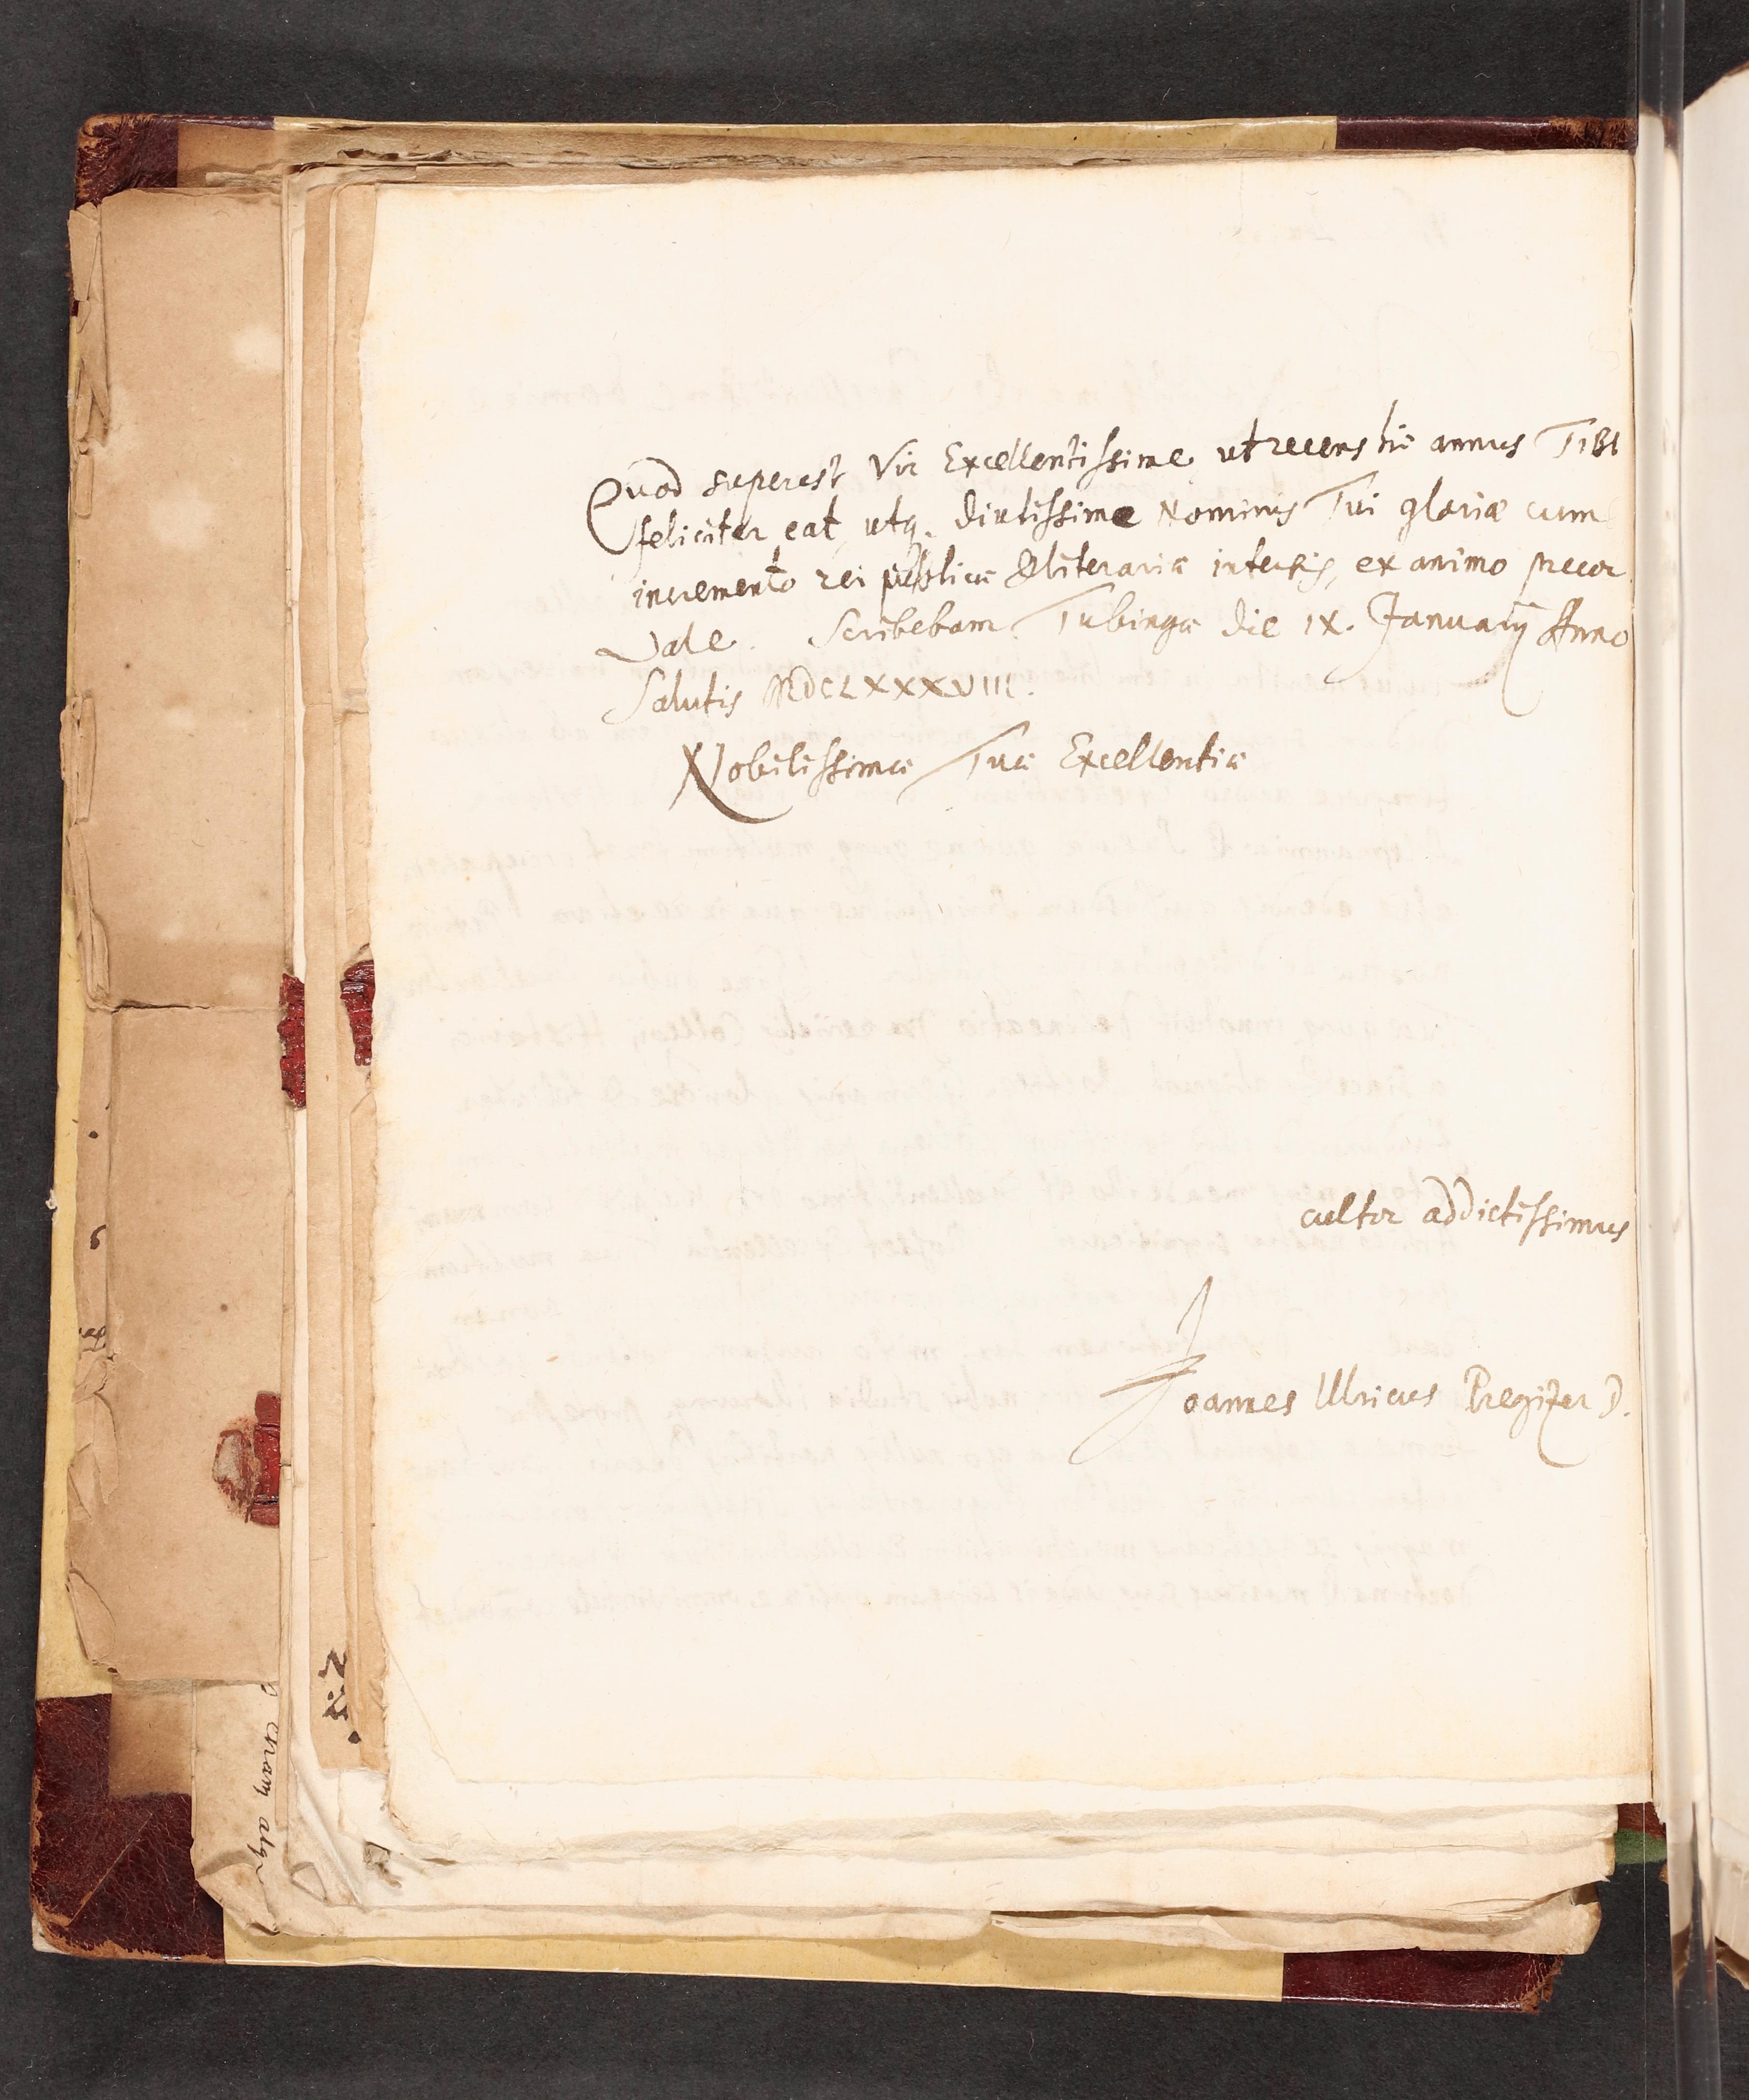 Quod superest Vir Excellentissime ut recens hic annus Tibi
feliciter eat, utq. diutissime Nominis Tui gloriæ cum
incremento rei publicæ & literariæ intersis, ex animo precor.
Vale. Scribebam Tubingæ die IX. Januarij Anno
Salutis MDCLXXXVIII.
Nobilissimæ Tuæ Excellentiæ
cultor addictissimus
Joannes Ulricus Pregizer D.
etiam atq